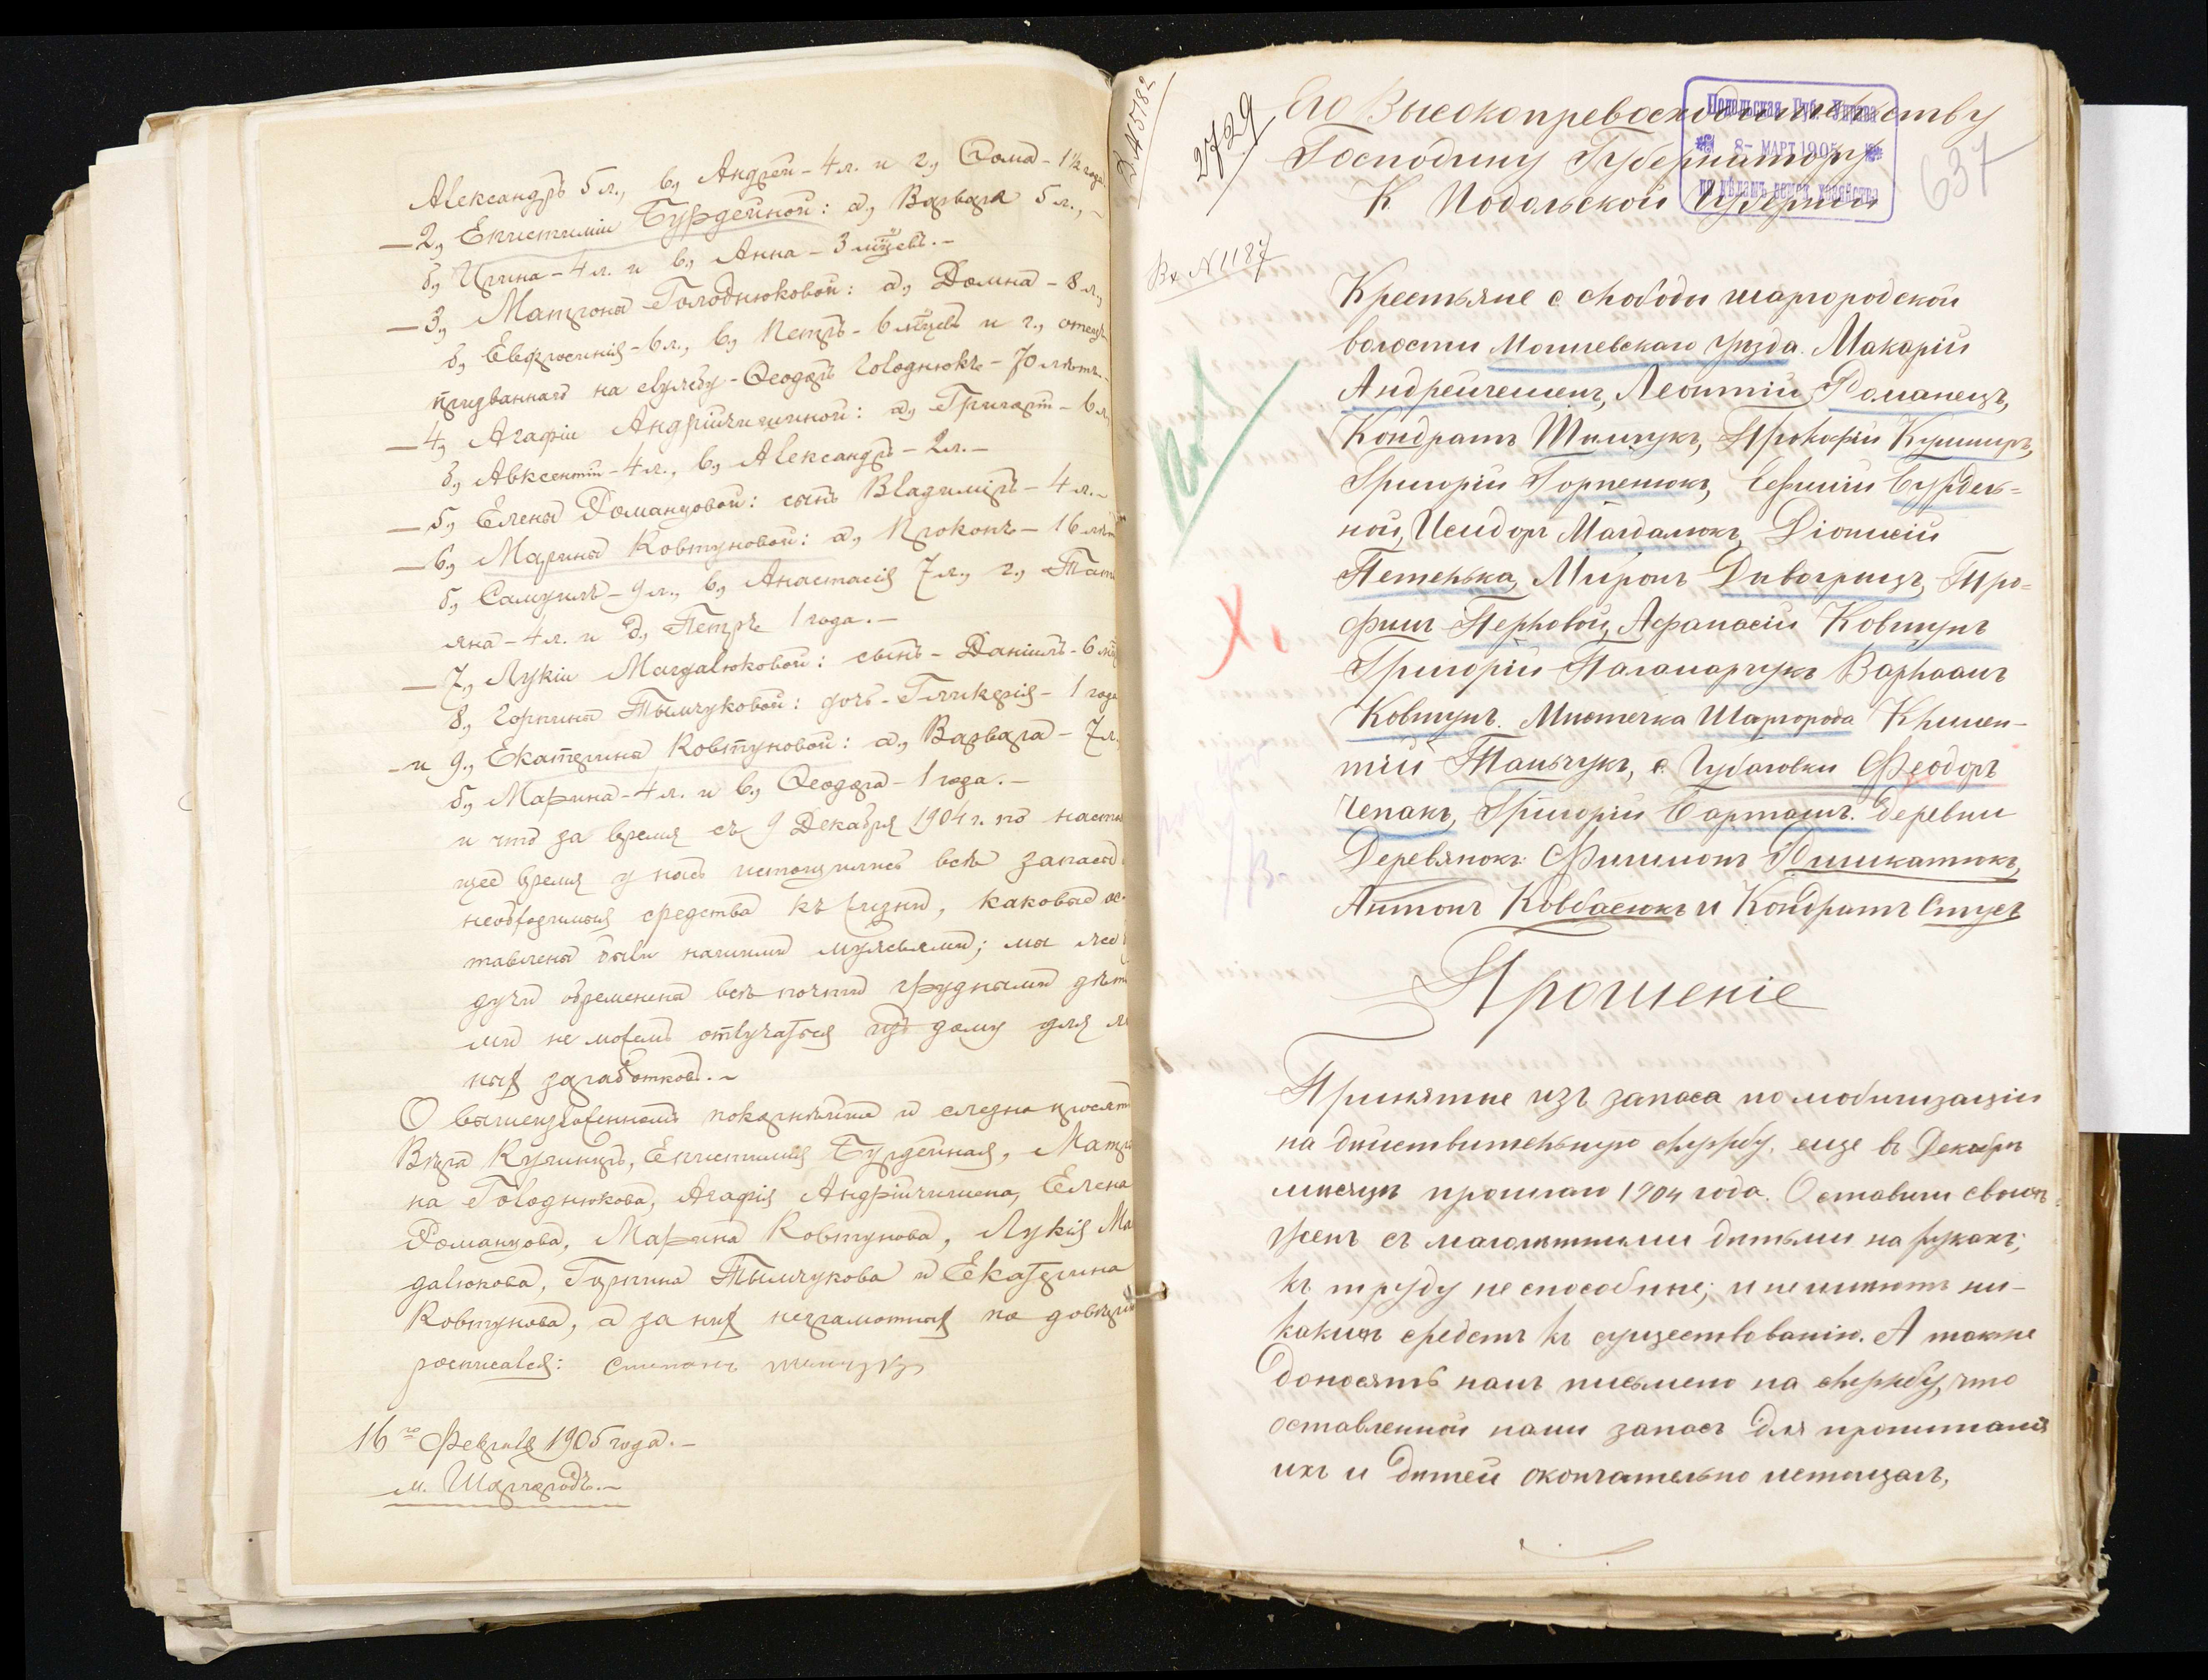 Александръ 5 л., в, Андрей - 4 л. и г, Ѳома - 1½ года.
— 2, Епистиміи Бурдейной: а, Варвара 5 л., -
б, Ирина - 4 л. и в, Анна - 3 мѣсяцевъ. -
— 3, Матроны Голоднюковой: а, Домна - 8 л.,
б, Евфросинія - 6 л., в, Петръ - 6 мѣсяцевъ и г, отецъ
призваннаго на службу - Ѳеодоръ Голоднюкъ - 70 лѣтъ. -
— 4, Агафіи Андрійчишиной: а, Григорій - 6 л.
б, Авксентій - 4 л., в, Александръ - 2 л. -
— 5, Елены Романцовой: сынъ Владиміръ - 4 л. -
— 6, Марины Ковтуновой: а, Прокопъ - 16 лѣтъ
б, Самуилъ - 9 л., в, Анастасія 7 л., г, Тать
яна - 4 л. и д, Петръ 1 года. -
— 7, Лукіи Магдалюковой: сынъ - Даніилъ - 6 мѣс
8, Горпины Тымчуковой: дочь - Гликерія - 1 года
— и 9, Екатерины Ковтуновой: а, Варвара - 7 л.
б, Марина - 4 л. и в, Ѳеодора - 1 года. -
и что за время съ 9 Декабря 1904 г. по настоя
щее время у насъ истощились всѣ запасы
необходимыя средства къ жизни, каковые ос-
тавлены были нашими мужьями; мы же бу
дучи обременены всѣ почти грудными дѣть
ми не можемъ отлучаться изъ дому для
ныхъ заработковъ. -
О вышеизложенномъ покорнѣйше и слезно просятъ
Вѣра Кушниръ, Епистимія Бурдейная, Матро
на Голоднюкова, Агафія Андрійчишена, Елена
Романцова, Марина Ковтунова, Лукія Маг
далюкова, Горпина Тымчукова и Екатерина
Ковтунова, а за нихъ неграмотныхъ по довѣрію
росписался: Степанъ
16го Февраля 1905 года. -
м. Шаргородъ. -
2729
Вх. N 1187
637
Его Высокопревосходительству
Господину Губернатору
К Подольской Губерніи
Подольская Губ. Управа
8 - МАРТ 1905
по дѣламъ земск. хозяйства
Крестьяне с. слободы шаргородской
волости Могилевскаго уѣзда. Макарій
Андрейчешенъ, Леонтій Романецъ,
Кондратъ Тимчукъ, Прокофій Кушниръ,
Григорій Горпенюкъ, Ефимій Бурдей=
ной, Исидоръ Магдалюкъ, Діонисій
Петенька, Миронъ Дивогрицъ, Тро=
фимъ Перковой, Афанасій Ковтунъ
Григорій Паламарчукъ Варлаамъ
Ковтунъ. Мистечка Шаргорода Климен-
тій Танчукъ, с. Чубаговки Феодоръ
Чепакъ, Григорій Барташъ. деревни
Деревянокъ Филимонъ
Антонъ Ковбасюкъ и Кондратъ Стусъ
Прошеніе
Принятые изъ запаса по мобилизаціи
на дѣйствительную службу, еще въ Декабрѣ
мисяцѣ прошлаго 1904 года. Оставили своихъ
женъ съ малолѣтними дѣтьми на рукахъ;
къ труду не способные; и не имѣютъ ни-
какихъ средствъ къ существованію. А также
доносятъ намъ письмено на службу, что
оставленной нами запасъ для пропитанія
ихъ и дѣтей окончательно истощалъ,